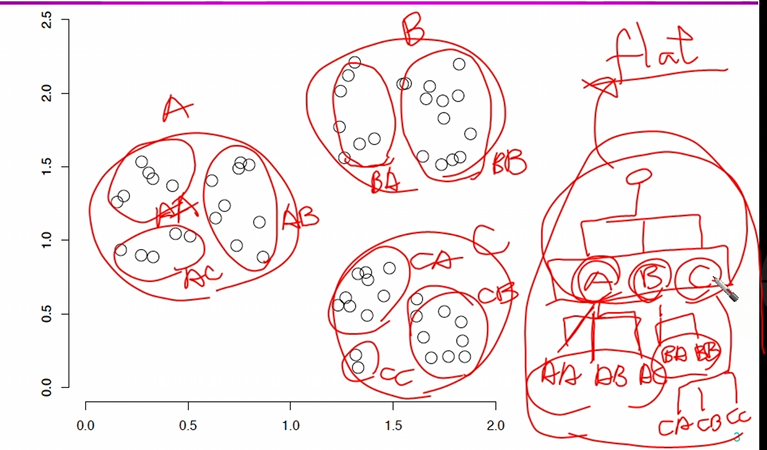 2.5
2.0
1.5
1.0
0.5
0.0
0.0 0.5 1.0 1.5 2.0
A
AA
AB
AC
B
BA
BB
C
CA
CB
CC
flat
A B C
AA AB AC
BA BB
CA CB CC
3